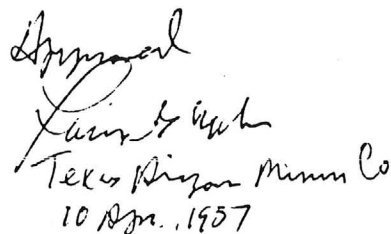 Approved
Texas Arizona Mining Co
10 Apr. 1957